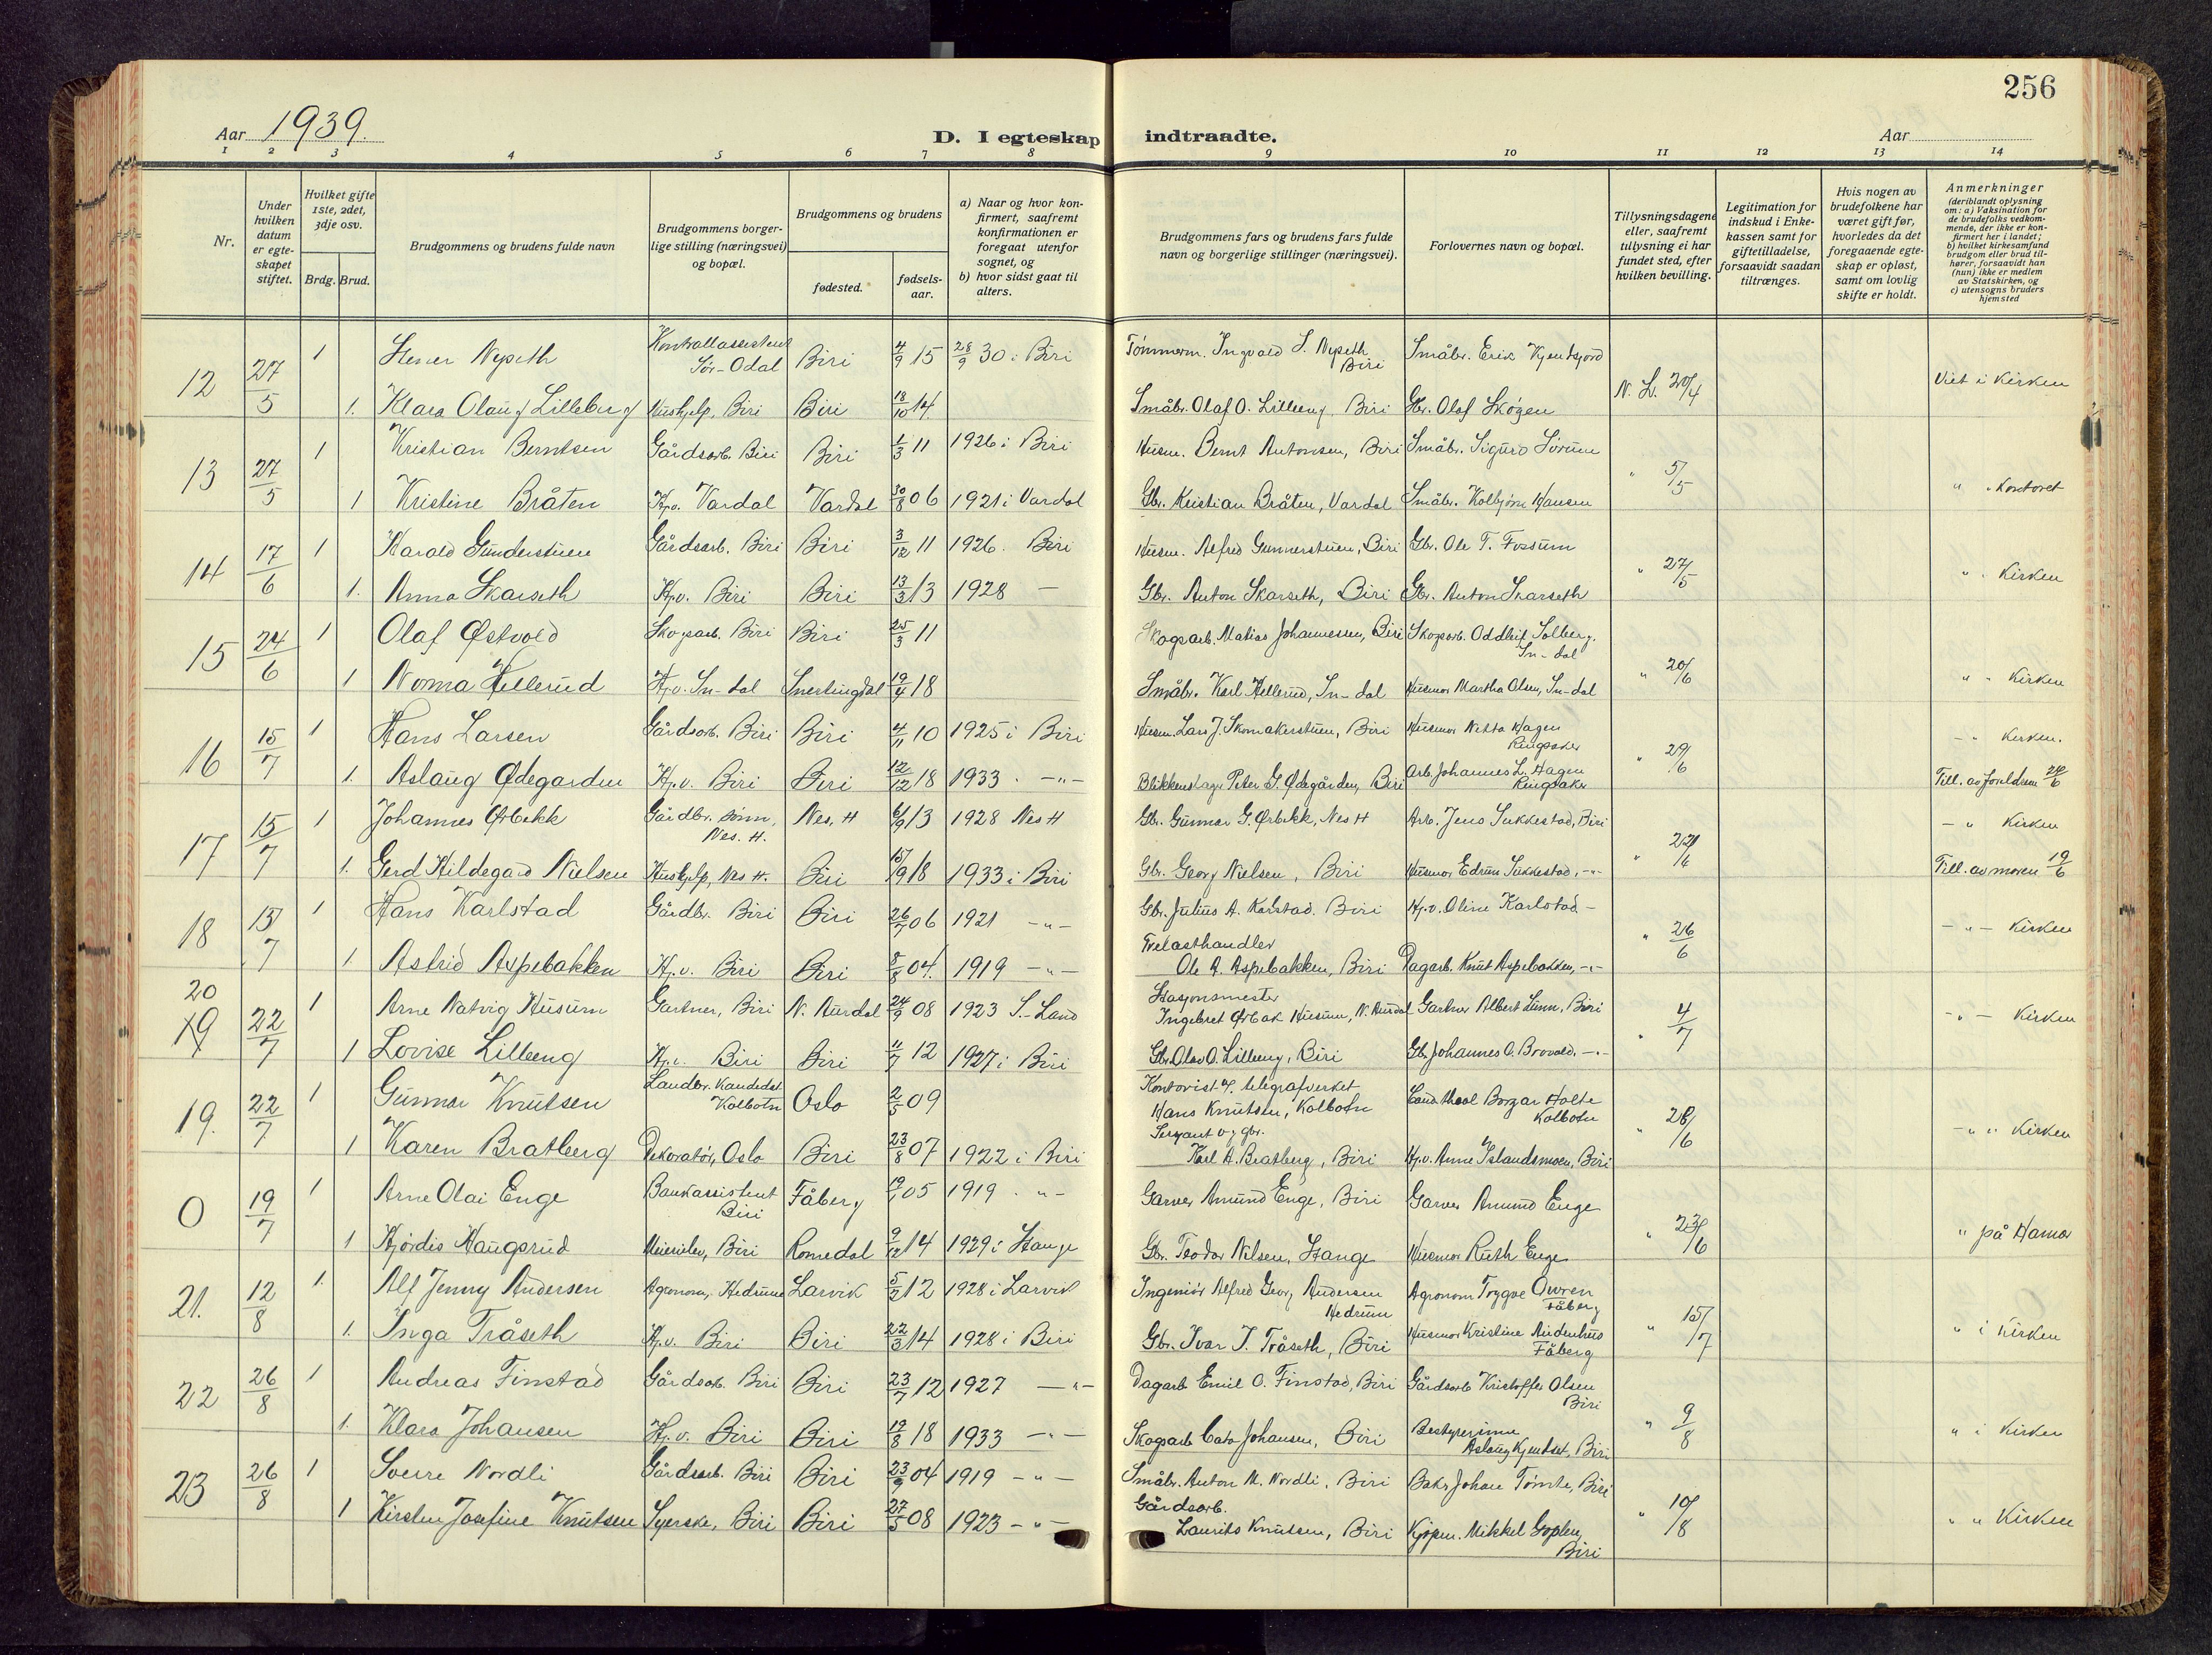 256
Aar 1939.
D. I egteskap indtraadte.
Aar
1 2 3 4 5 6 7 8 9 10 11 12 13 14
Nr.
Under hvilken datum er egte-skapet stiftet.
Hvilket gifte 1ste, 2det, 3dje osv.
Brdg. Brud.
Brudgommens og brudens fulde navn
Brudgommens borger-lige stilling (næringsvei) og bopæl.
Brudgommens og brudens
fødested.
fødsels-aar.
a) Naar og hvor kon-firmert, saafremt konfirmationen er foregaat utenfor sognet, og
b) hvor sidst gaat til alters.
Brudgommens fars og brudens fars fulde navn og borgerlige stillinger (næringsvei).
Forlovernes navn og bopæl.
Tillysningsdagene eller, saafremt tillysning ei har fundet sted, efter hvilken bevilling.
Legitimation for indskud i Enke-kassen samt for giftetilladelse, forsaavidt saadan tiltrænges.
Hvis nogen av brudefolkene har været gift før, hvorledes da det foregaaende egte-skap er opløst, samt om lovlig skifte er holdt.
Anmerkninger (deriblandt oplysning om: a) Vaksination for de brudefolks vedkom-mende, der ikke er kon-firmert her i landet; b) hvilket kirkesamfund brudgom eller brud til-hører, forsaavidt han (hun) ikke er medlem av Statskirken, og c) utensogns bruders hjemsted
12 27/5 1 Stener Nyseth Kontrollassistent Sør-Odal Biri 4/9 15 28/9 30 i Biri Tømmerm. Ingvald S. Nyseth Biri Småbr. Erik Kjendsjord N. L. 20/4 Viet i Kirken
1. Klara Olaug Lilleberg Hushjelp, Biri Biri 18/10 14. Småbr. Olaf O. Lilleeng, Biri Gbr. Olaf Skogen
13 27/5 1 Kristian Berntsen Gårdsarb. Biri Biri 1/3 11 1926 i Biri Husm. Bernt Antonsen, Biri Småbr. Sigurd Sørum " 5/5 " " Kontoret
1 Kristine Bråten Hjv. Vardal Vardal 30/8 06 1921 i Vardal Gbr. Kristian Bråten, Vardal Småbr. Kolbjørn Hansen
14 17/6 1 Harald Gunderstuen Gårdsarb. Biri Biri 3/12 11 1926. Biri Husm. Alfred Gunnerstuen, Biri Gbr. Ole T. Fossum " 27/5 " " Kirken
1. Anna Skarseth Hjv. Biri Biri 13/3 13 1928 — Gbr. Anton Skarseth, Biri Gbr. Anton Skarseth
15 24/6 1 Olaf Østvold Skogsarb. Biri Biri 25/3 11 Skogsarb. Matias Johannessen, Biri Skogsarb. Oddleif Solberg. Sn-dal " 20/6 " " Kirken
1 Norma Hellerud Hjv. Sn-dal Snertingdal 19/4 18 Småbr. Karl Hellerud, Sn-dal Husmor Martha Olsen, Sn-dal
16 15/7 1 Hans Larsen Gårdsarb. Biri Biri 4/11 10 1925 i Biri Husm. Lars J. Skomakerstuen, Biri Husmor Netta Hagen Ringsaker " 29/6 - " Kirken.
1. Aslaug Ødegarden Hjv. Biri Biri 12/12 18 1933. -"- Blikkenslager Peter G. Ødegården, Biri Arb. Johannes L. Hagen Ringsaker Till. av foreldren 29/6
17 15/7 1 Johannes Ørbekk Gårdbr. sønn, Nes. H. Nes, H 6/9 13 1928 Nes H Gbr. Gunnar G. Ørbekk, Nes H Arb. Jens Sukkestad, Biri " 22/6 - " Kirken
1. Gerd Hildegard Nielsen Hushjelp, Nes H. Biri 15/9 18 1933 i Biri Gbr. Georg Nielsen, Biri Husmor Edrun Sukkestad. -"- Till. av moren 19/6
18 15/7 1 Hans Karlstad Gårdbr. Biri Biri 26/7 06 1921 -"- Gbr. Julius A. Karlstad. Biri Hjv. Oline Karlstad - " 26/6 -"- Kirken
1. Astrid Aspebakken Hjv. Biri Biri 8/8 04. 1919 -"- Trelasthandler Ole A. Aspebakken, Biri Dagarb. Knut Aspebakken, -"-
20 19 22/7 1 Arne Natvig Husum Gartner, Biri N. Aurdal 24/9 08 1923 S.-Land Stasjonsmester Ingebret Ørbak Husum, N. Aurdal Gartner Albert Lunn, Biri " 4/7 -"- Kirken
1 Lovise Lilleeng Hjv. Biri Biri 11/7 12 1927 i Biri Gbr. Olav O. Lilleeng, Biri Gb. Johannes O. Brovold. -"-
19. 22/7 1 Gunnar Knutsen Landbr. Kandidat Kolbotn Oslo 2/5 09 Kontorist v. telegrafverket Hans Knutsen, Kolbotn Cand theol Borgar Holte Kolbotn " 28/6 -"- Kirken
1 Karen Bratberg Dekoratør, Oslo Biri 23/8 07 1922 i Biri Sersjant og gbr. Karl A. Bratberg, Biri Hjv. Anne Islandsmoen, Biri
0 19/7 1 Arne Olai Enge Bankassistent Biri Fåberg 19/1 05 1919. "- Garver Amund Enge, Biri Garver Amund Enge " 23/6 " på Hamar
1 Hjørdis Haugsrud Meierilev, Biri Romedal 9/12 14 1929 i Stange Gbr. Teodor Nilsen, Stange Husmor Ruth Enge
21. 12/8 1. Alf Jenny Andersen Agronom, Hedrum Larvik 5/2 12 1928 i Larvik Ingeniør Alfred Georg Andersen Hedrum Agronom Trygve Owren Fåberg " 15/7 " i Kirken
1. Inga Tråseth Hjv. Biri Biri 22/3 14 1928 i Biri Gbr. Ivar J. Tråseth, Biri Husmor Kristine Audenhus Fåberg
22 26/8 1 Andreas Finstad Gårdsarb. Biri Biri 23/7 12 1927 -"- Dagarb Emil O. Finstad, Biri Gårdsarb Kristoffer Olsen Biri " 9/8 " i Kirken
1. Klara Johansen Hj.v. Biri Biri 19/8 18 1933 -"- Skogsarb Cato Johansen, Biri Bestyrerinne Aslaug Kjendset, Biri
23 26/8 1 Sverre Nordli Gårdsarb. Biri Biri 23/9 04 1919 -"- Småbr. Anton M. Nordli, Biri Baker Johan Tømte, Biri " 10/8 " " Kirken
1 Kirsten Josefine Knutsen Syerske, Biri Biri 27/5 08 1923 -"- Gårdsarb. Laurits Knutsen, Biri Kjøpm. Mikkel Goplen, Biri